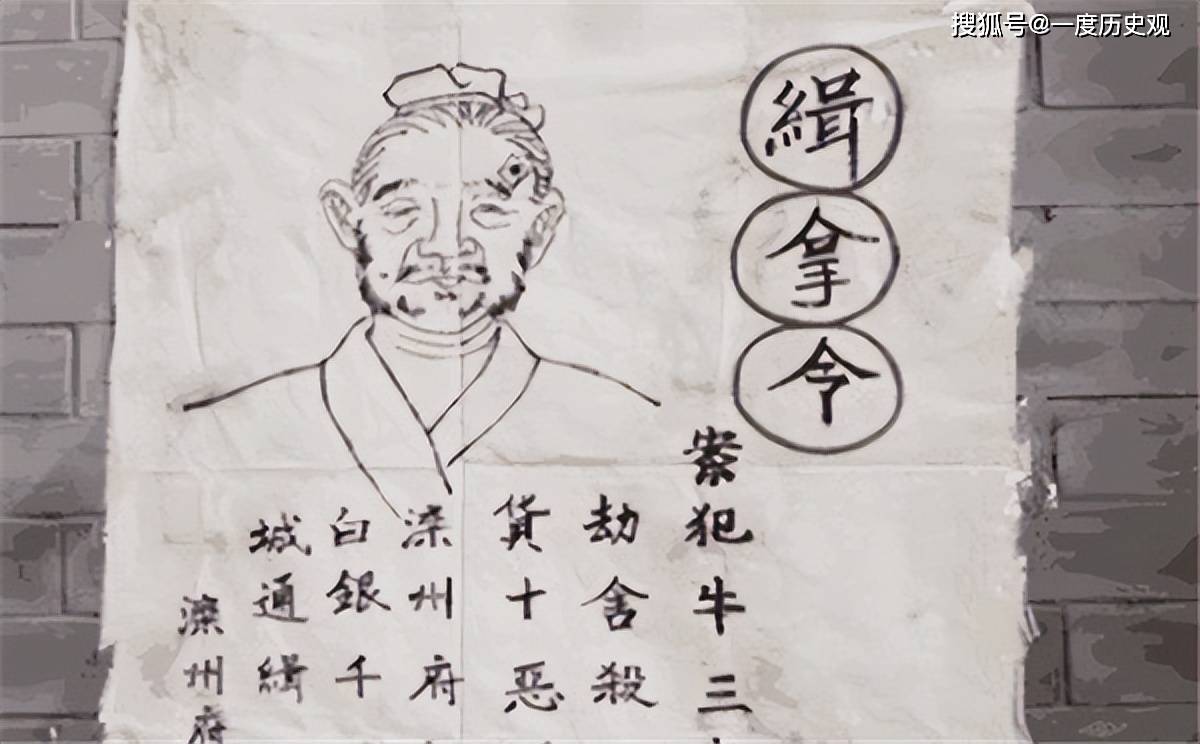 搜狐号@一度历史观
緝拿令
案犯牛三
劫舍殺
貨十恶
滦州府
白銀千
城通緝
滦州府